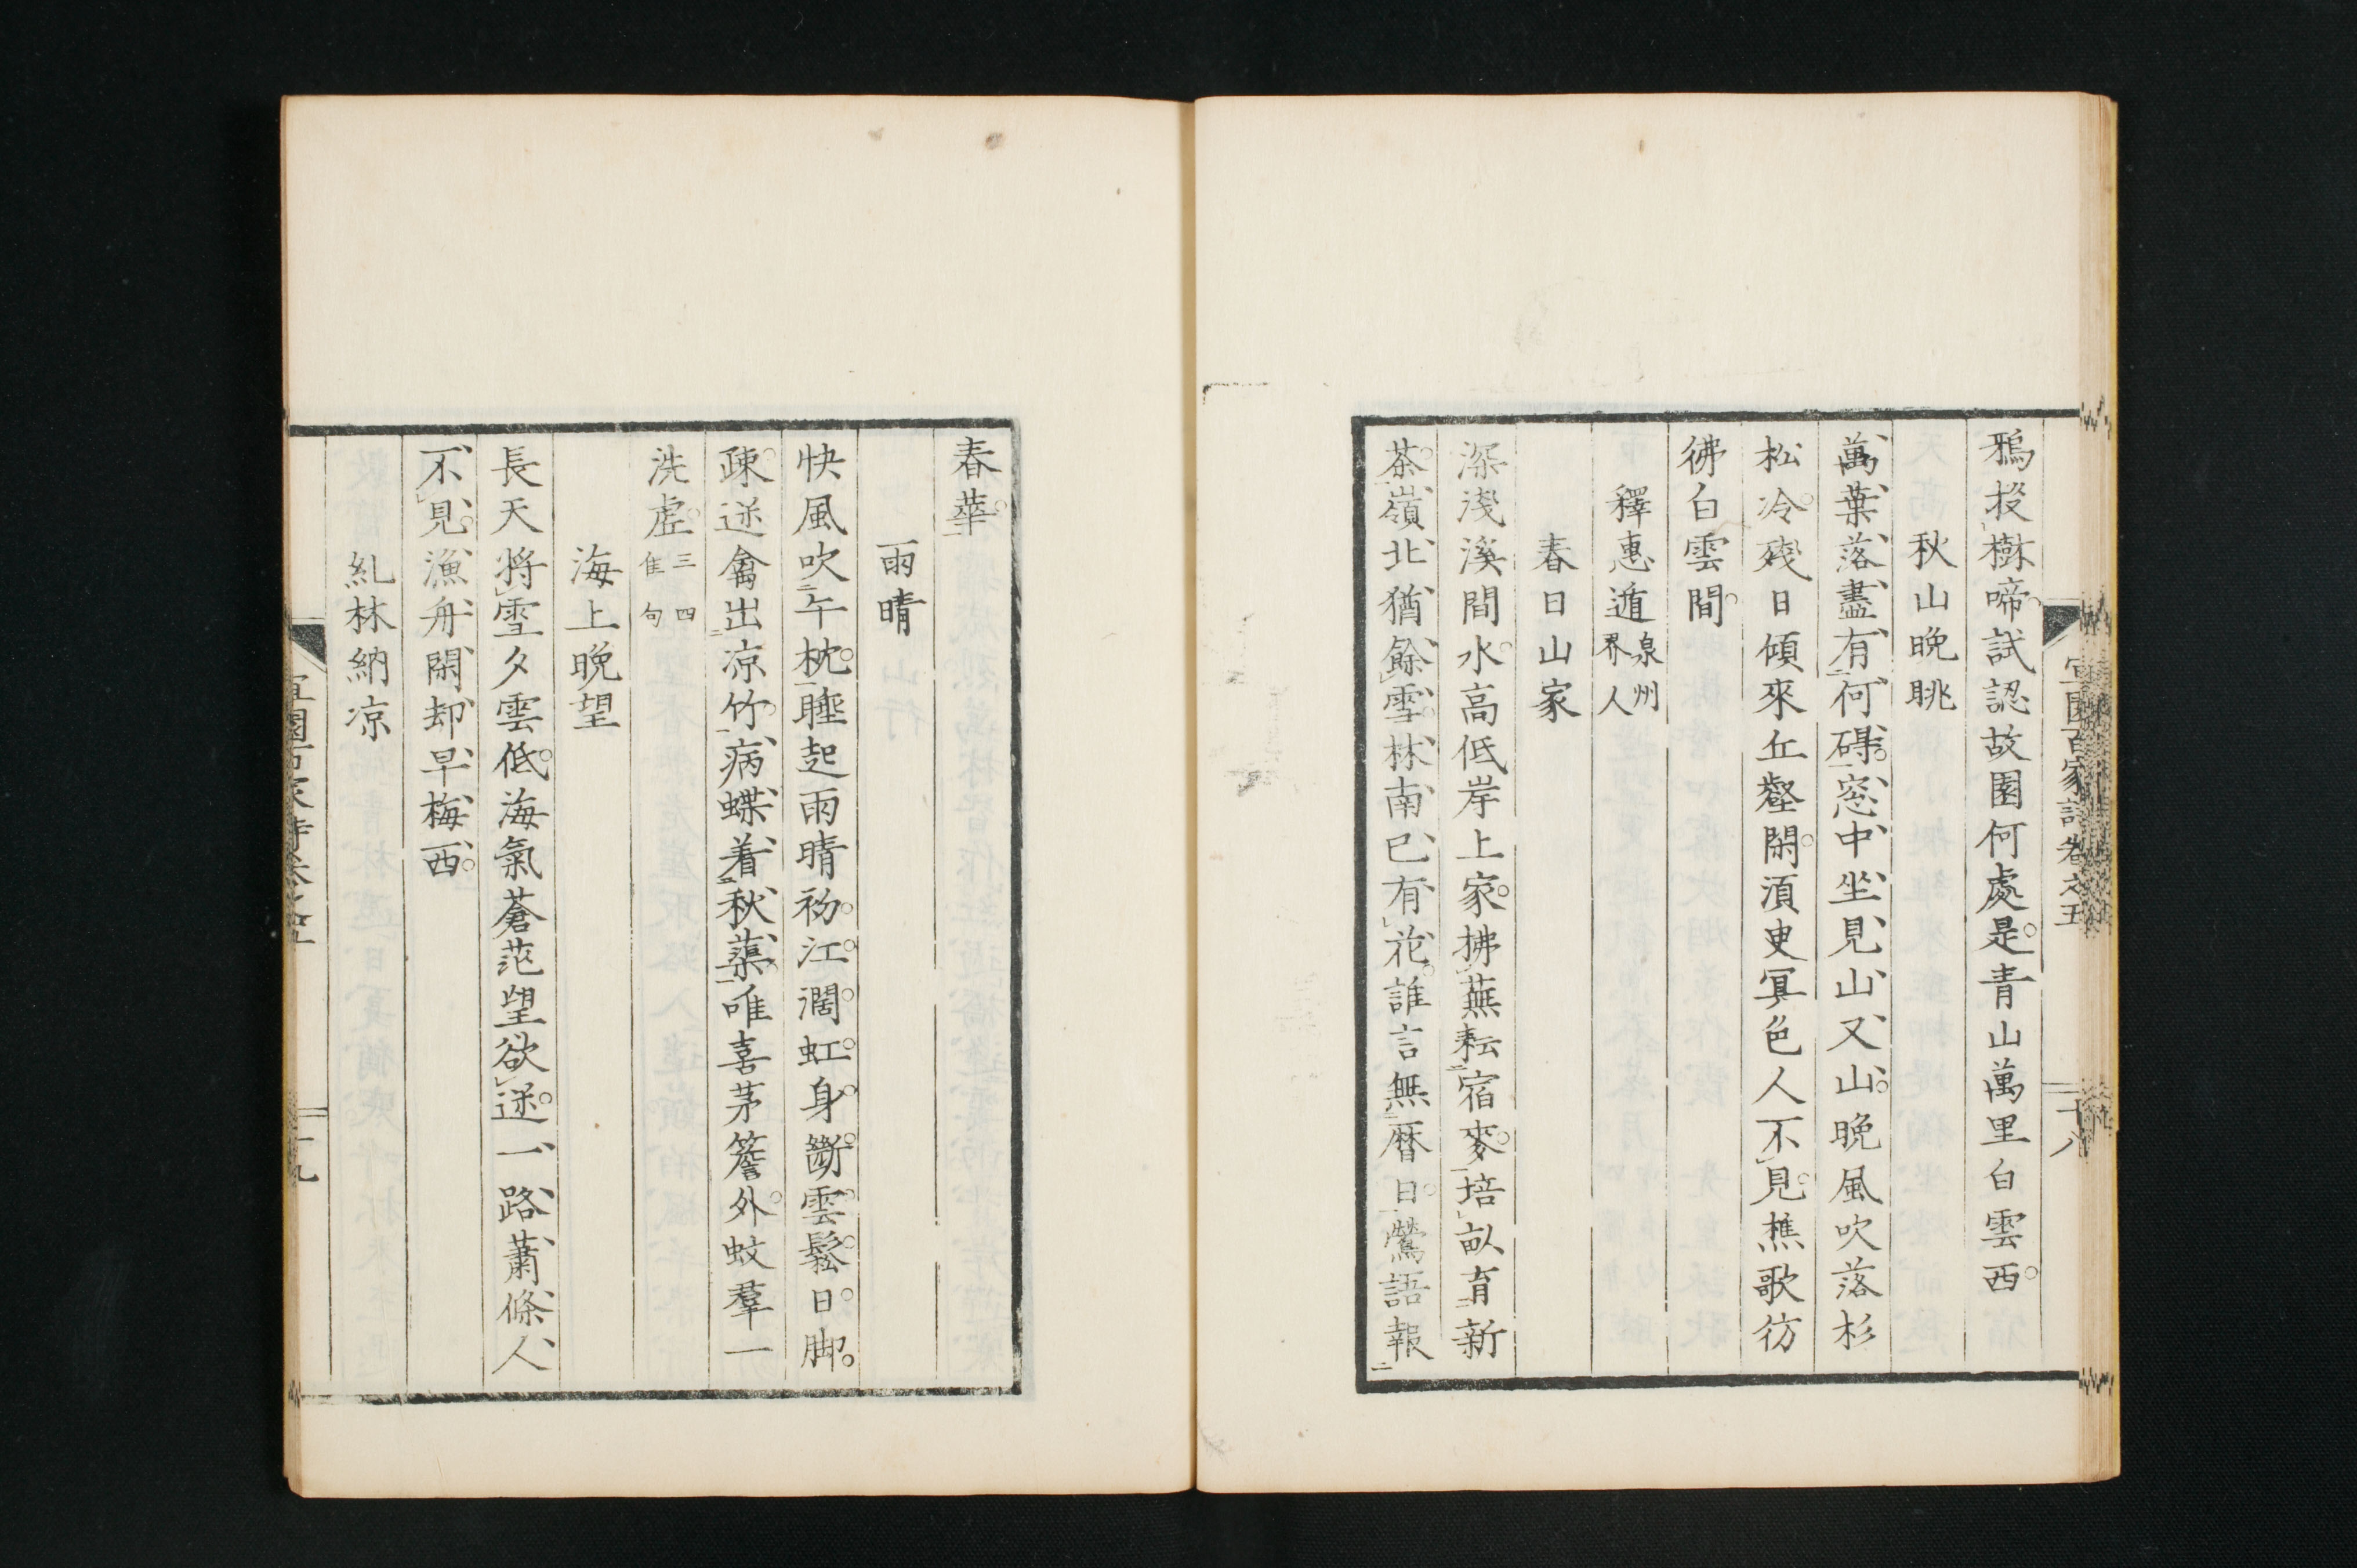 鴉投樹啼試認故園何處是青山萬里白雲西
秋山晚眺
萬葉落盡有何碍窓中坐見山又山晚風吹落杉
松冷殘日傾來丘壑閑須臾冥色人不見樵歌彷
彿白雲間
釋惠遁泉州界人
春日山家
深淺溪間水高低岸上家拂蕪耘宿麥培畝育新
茶嶺北猶餘雪林南已有花誰言無暦日鶯語報
春華
雨晴
快風吹午枕睡起雨晴初江濶虹身斷雲鬆日脚
疎逆禽出凉竹病蝶着秋蕖唯喜茅簷外蚊羣一
洗虛三四隹句
海上晚望
長天將雪夕雲低海氣蒼茫望欲迷一路蕭條人
不見漁舟閑却早梅西
糺林納凉
宜園百家詩卷之五
十八